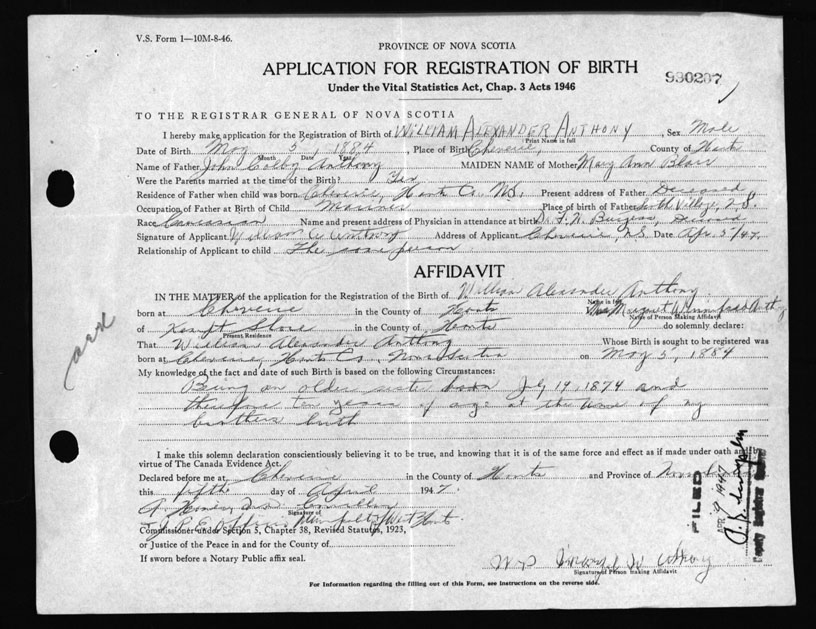 V.S. Form 1—10M-8-46.
PROVINCE OF NOVA SCOTIA
APPLICATION FOR REGISTRATION OF BIRTH
930207
Under the Vital Statistics Act, Chap. 3 Acts 1946
TO THE REGISTRAR GENERAL OF NOVA SCOTIA
I hereby make application for the Registration of Birth of WILLIAM ALEXANDER ANTHONY, Sex Male
Print Name in full
Date of Birth May 5, 1884, Place of Birth Cheverie, County of Hants
Month Date Year
Name of Father John Colby Anthony MAIDEN NAME of Mother Mary Ann Blair
Were the Parents married at the time of the Birth? Yes
Residence of Father when child was born Cheverie, Hants Co. N.S. Present address of Father Deceased
Occupation of Father at Birth of Child Mariner Place of birth of Father
Race Caucasian Name and present address of Physician in attendance at birth Dr. F. N. Burgess, Deceased
Signature of Applicant William A Anthony Address of Applicant Cheverie, N.S. Date Apr. 5/47.
Relationship of Applicant to child The same person
AFFIDAVIT
IN THE MATTER of the application for the Registration of the Birth of William Alexander Anthony
Name in full
born at Cheverie in the County of Hants Mrs Margaret Winnifred Anthony
Name of Person Making Affidavit
of Kempt Shore in the County of Hants do solemnly declare:
Present Residence
That William Alexander Anthony Whose Birth is sought to be registered was
born at Cheverie, Hants Co., Nova Scotia on May 5, 1884
My knowledge of the fact and date of such Birth is based on the following Circumstances:
Being an older sister born July 19, 1874 and
therefore ten years of age at the time of my
brothers birth
I make this solemn declaration conscientiously believing it to be true, and knowing that it is of the same force and effect as if made under oath and by
virtue of The Canada Evidence Act.
Declared before me at Cheverie in the County of Hants and Province of Nova Scotia
this fifth day of April 1947.
Signature of
Commissioner under Section 5, Chapter 38, Revised Statutes, 1923,
or Justice of the Peace in and for the County of
If sworn before a Notary Public affix seal.
Signature of Person making Affidavit
For Information regarding the filling out of this Form, see instructions on the reverse side.
FILED
APR 9 1947